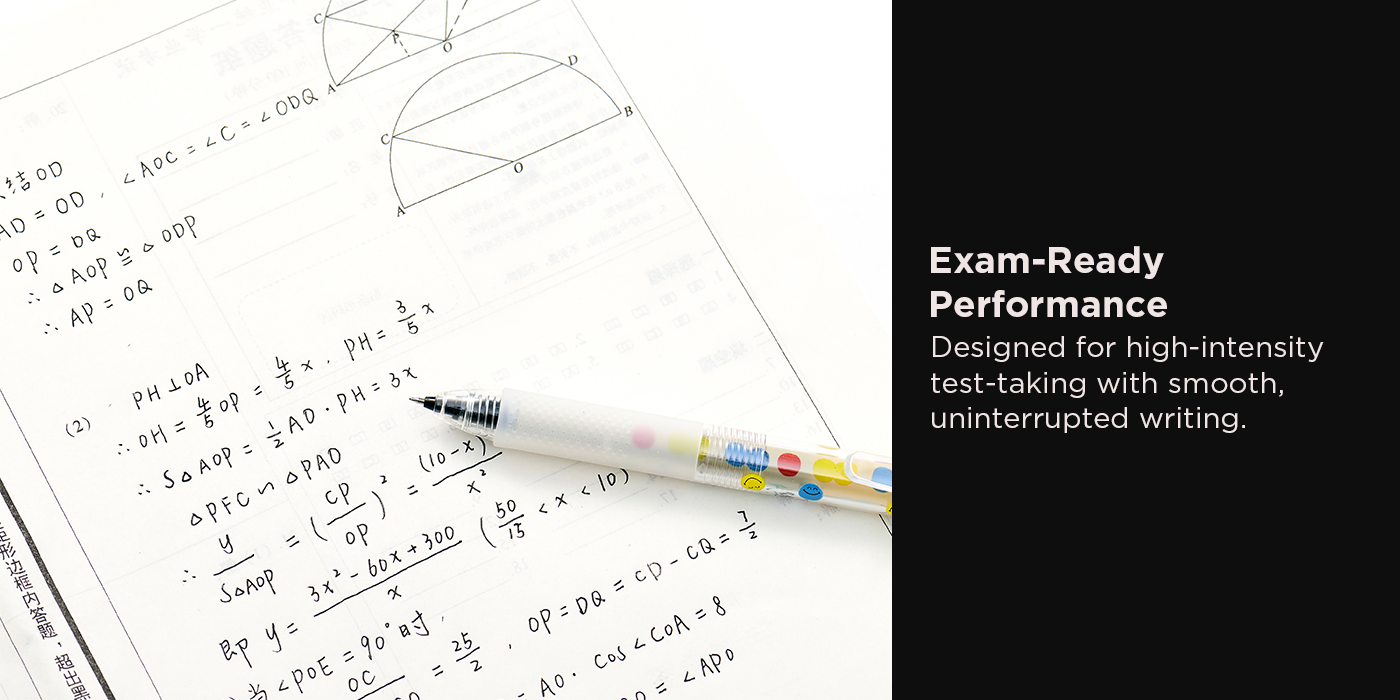 C
P
O
A
D
B
C
O
A
结OD
AD = OD , ∠AOC = ∠C = ∠ODQ
OP = DQ
∴ △AOP ≌ △ODP
∴ AP = OQ
(2) PH⊥OA
∴ OH = 4/5 OP = 4/5 x . PH = 3/5 x
∴ S△AOP = 1/2 AO · PH = 3x
△PFC ∽ △PAO
∴ y/S△AOP = (CP/OP)² = (10-x)/x²
即 y = 3x² - 60x + 300/x (50/13 < x < 10)
当∠POE = 90°时.
OC = 25/2 , OP = DQ = CD - CQ = 7/2
= AO · cos∠COA = 8
= ∠APO
形边框内答题，超出黑
Exam-Ready
Performance
Designed for high-intensity
test-taking with smooth,
uninterrupted writing.